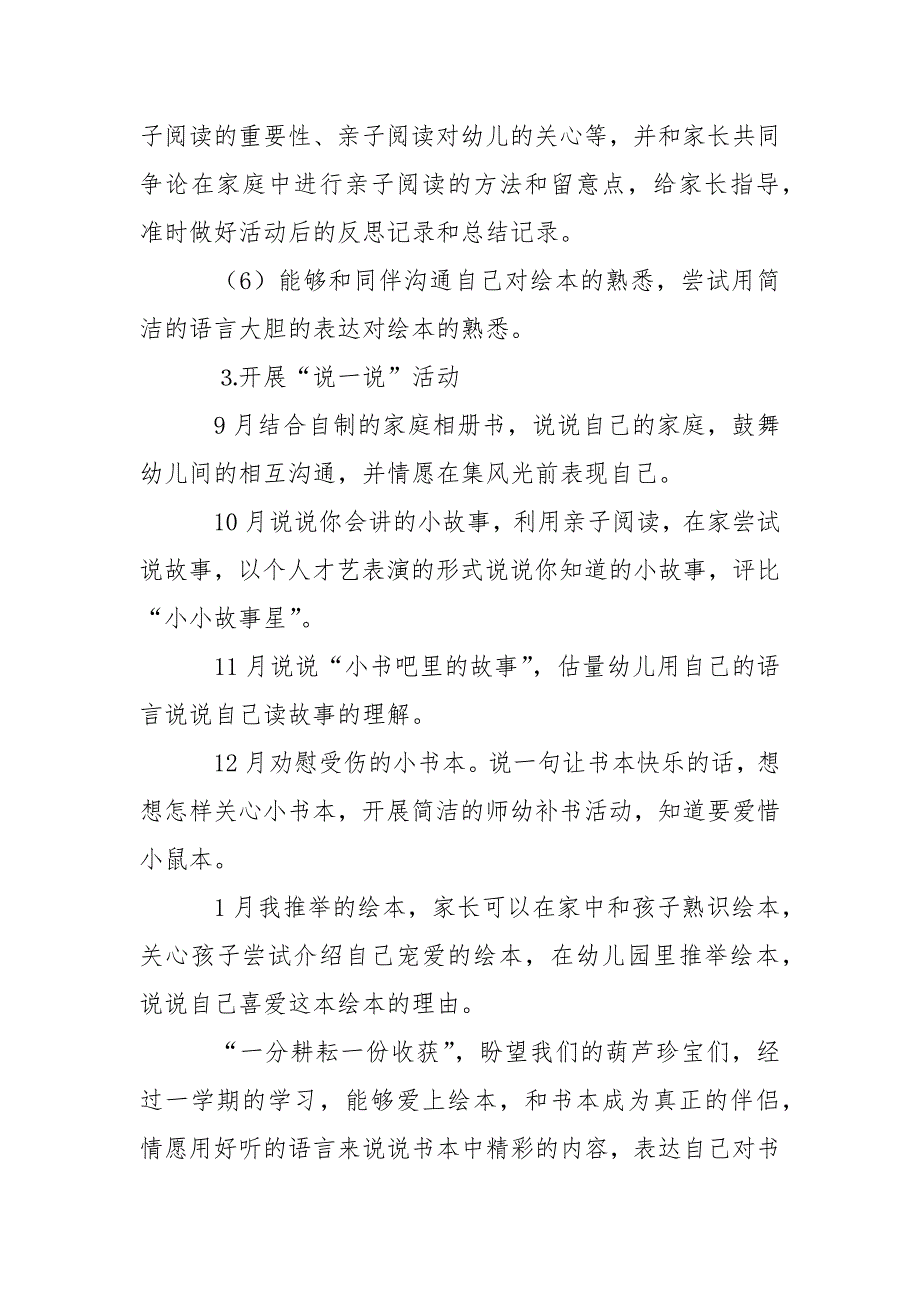 子阅读的重要性、亲子阅读对幼儿的关心等，并和家长共同
争论在家庭中进行亲子阅读的方法和留意点，给家长指导，
准时做好活动后的反思记录和总结记录。
（6）能够和同伴沟通自己对绘本的熟悉，尝试用简
洁的语言大胆的表达对绘本的熟悉。
3.开展“说一说”活动
9 月结合自制的家庭相册书，说说自己的家庭，鼓舞
幼儿间的相互沟通，并情愿在集风光前表现自己。
10 月说说你会讲的小故事，利用亲子阅读，在家尝试
说故事，以个人才艺表演的形式说说你知道的小故事，评比
“小小故事星”。
11 月说说“小书吧里的故事”，估量幼儿用自己的语
言说说自己读故事的理解。
12 月劝慰受伤的小书本。说一句让书本快乐的话，想
想怎样关心小书本，开展简洁的师幼补书活动，知道要爱惜
小鼠本。
1 月我推举的绘本，家长可以在家中和孩子熟识绘本，
关心孩子尝试介绍自己宠爱的绘本，在幼儿园里推举绘本，
说说自己喜爱这本绘本的理由。
“一分耕耘一份收获”，盼望我们的葫芦珍宝们，经
过一学期的学习，能够爱上绘本，和书本成为真正的伴侣，
情愿用好听的语言来说说书本中精彩的内容，表达自己对书